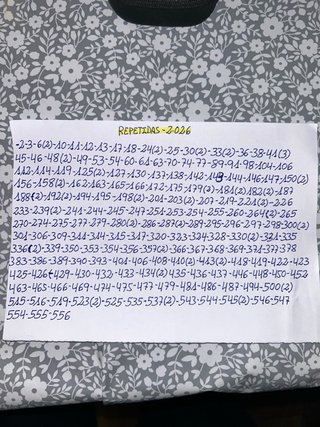 REPETIDAS-2026
-2-3-6(2)-10-11-12-13-17-18-24(2)-25-30(2)-33(2)-36-38-41(3)
45-46-48(2)-49-53-54-60-61-63-70-74-77-89-91-98-104-106
112-114-119-125(2)-127-130-137-138-142-143-144-146-147-150(2)
156-158(2)-162-163-165-166-172-175-179(2)-181(2)-182(2)-187
188(2)-192(2)-194-195-198(2)-201-203(2)-207-219-221(2)-226
233-239(2)-241-244-245-247-251-253-254-255-260-264(2)-265
270-274-275-277-279-280(2)-286-287(2)-289-295-296-297-298-300(2)
301-306-309-311-314-315-317-320-323-324-328-330(2)-331-335
336(2)-339-350-353-354-356-357(2)-366-367-368-369-371-377-378
383-386-389-390-393-401-406-408-410(2)-413(2)-418-419-422-423
425-426-429-430-432-433-434(2)-435-436-437-446-448-450-452
463-465-466-469-474-475-477-479-484-486-487-494-500(2)
515-516-519-523(2)-525-535-537(2)-543-544-545(2)-546-547
554-555-556